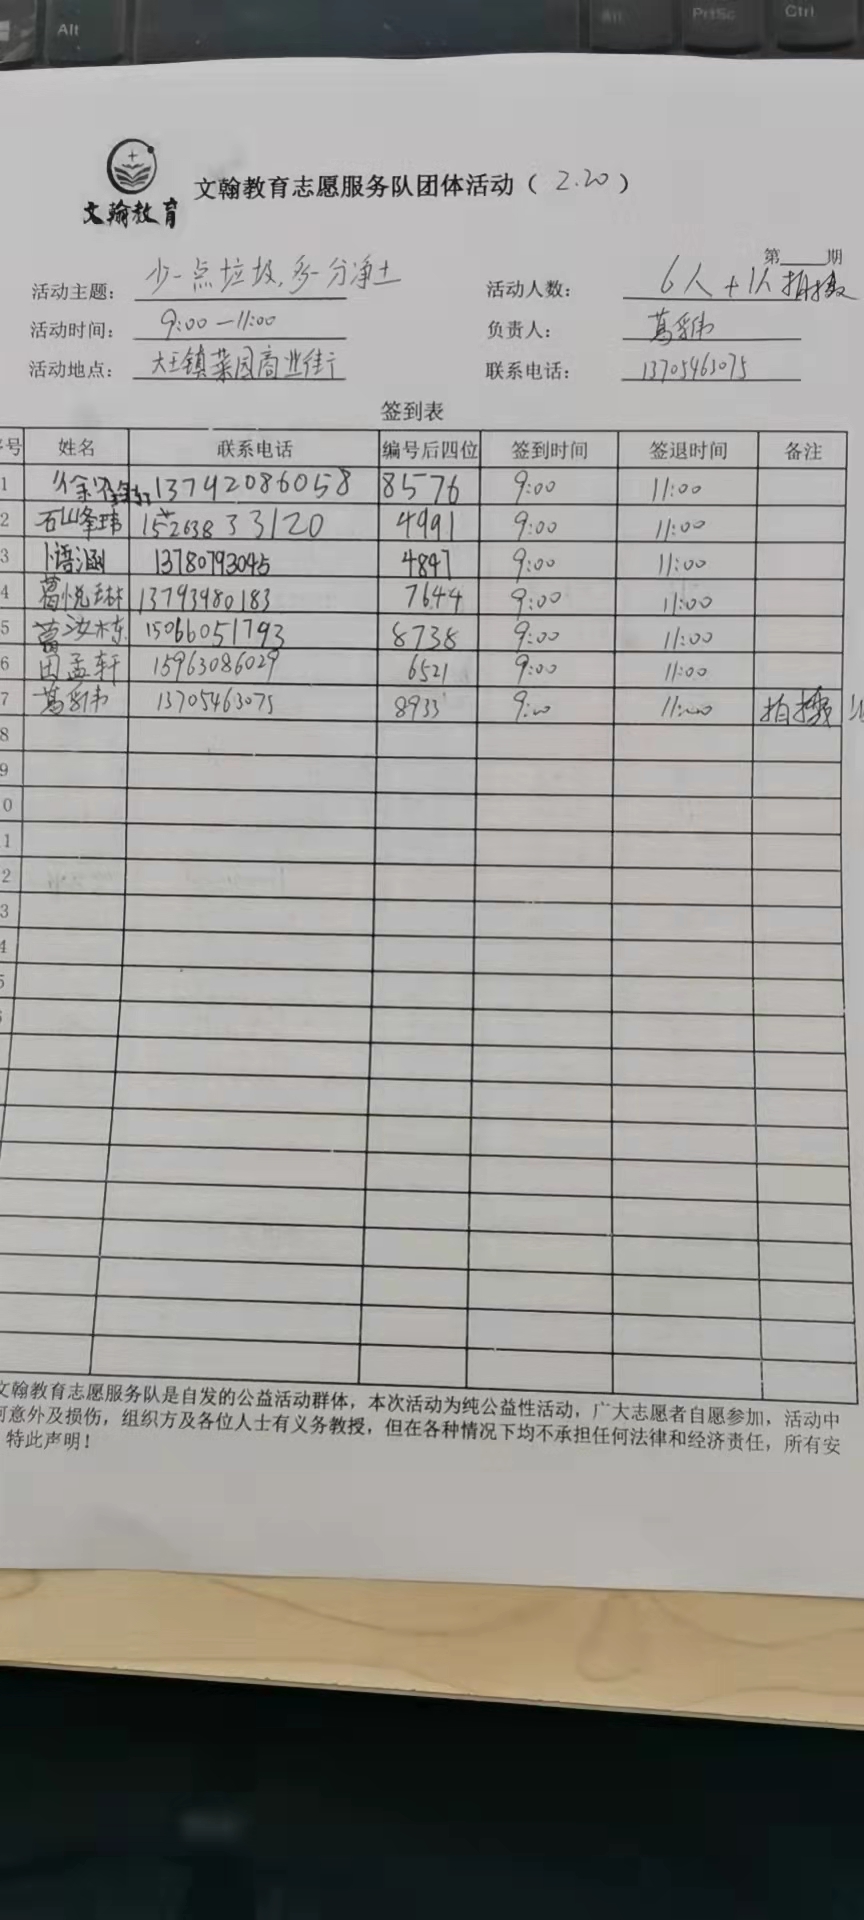 Alt
Alt
PrtSc
Ctrl
文翰教育
文翰教育志愿服务队团体活动（ 2.20 ）
第 期
活动主题： 少一点垃圾，多一分净土
活动人数： 6人+1人拍摄
活动时间： 9:00—11:00
负责人： 葛
活动地点： 大王镇菜园商业街
联系电话： 13705463075
签到表
序号 姓名 联系电话 编号后四位 签到时间 签退时间 备注
1 徐 13742086058 8576 9:00 11:00
2 石峰玮 15263833120 4991 9:00 11:00
3 卜语涵 13780793045 4847 9:00 11:00
4 葛悦琳 13793980183 7644 9:00 11:00
5 葛汝栋 15066051793 8738 9:00 11:00
6 田孟轩 15963086029 6521 9:00 11:00
7 葛 13705463075 8933 9:00 11:00 拍摄
8
9
0
1
2
3
4
5
文翰教育志愿服务队是自发的公益活动群体，本次活动为纯公益性活动，广大志愿者自愿参加，活动中
何意外及损伤，组织方及各位人士有义务教授，但在各种情况下均不承担任何法律和经济责任，所有安
特此声明！